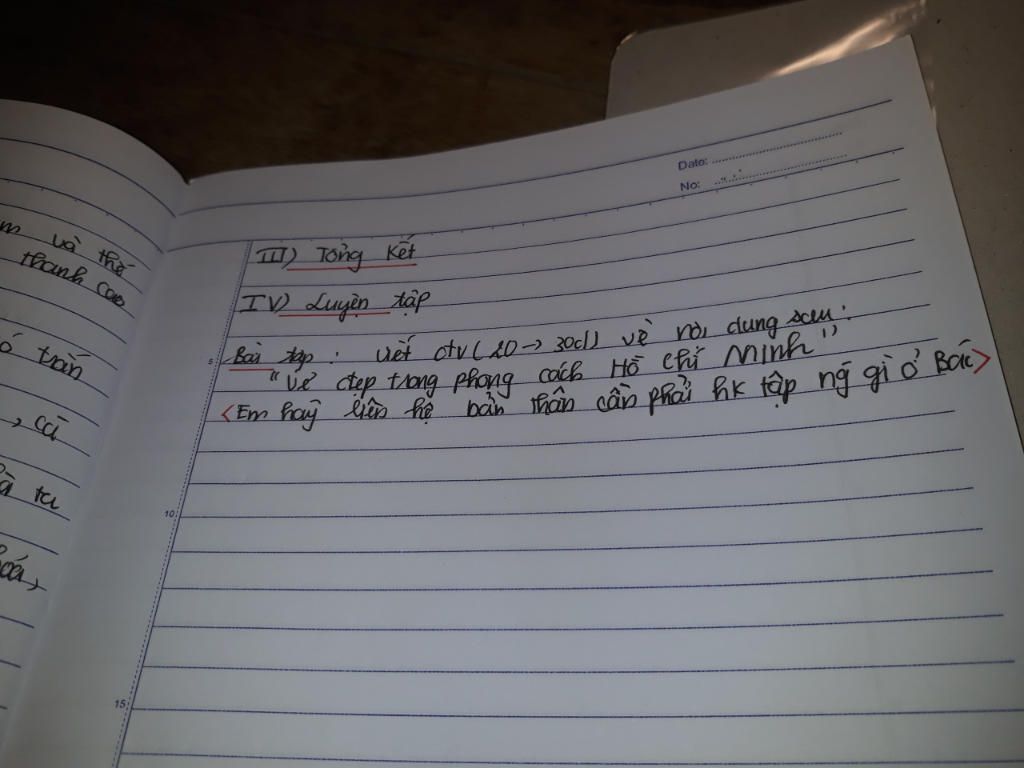 m và thế
thanh cao
ố trần
, cả
ta
Date:
No:
III) Tổng kết
IV) Luyện tập
5
Bài tập : viết đtv (20 → 30d) về nội dung sau :
"Vẻ đẹp trong phong cách Hồ Chí Minh"
<Em hãy liên hệ bản thân cần phải hk tập ng gì ở Bác>
10
15